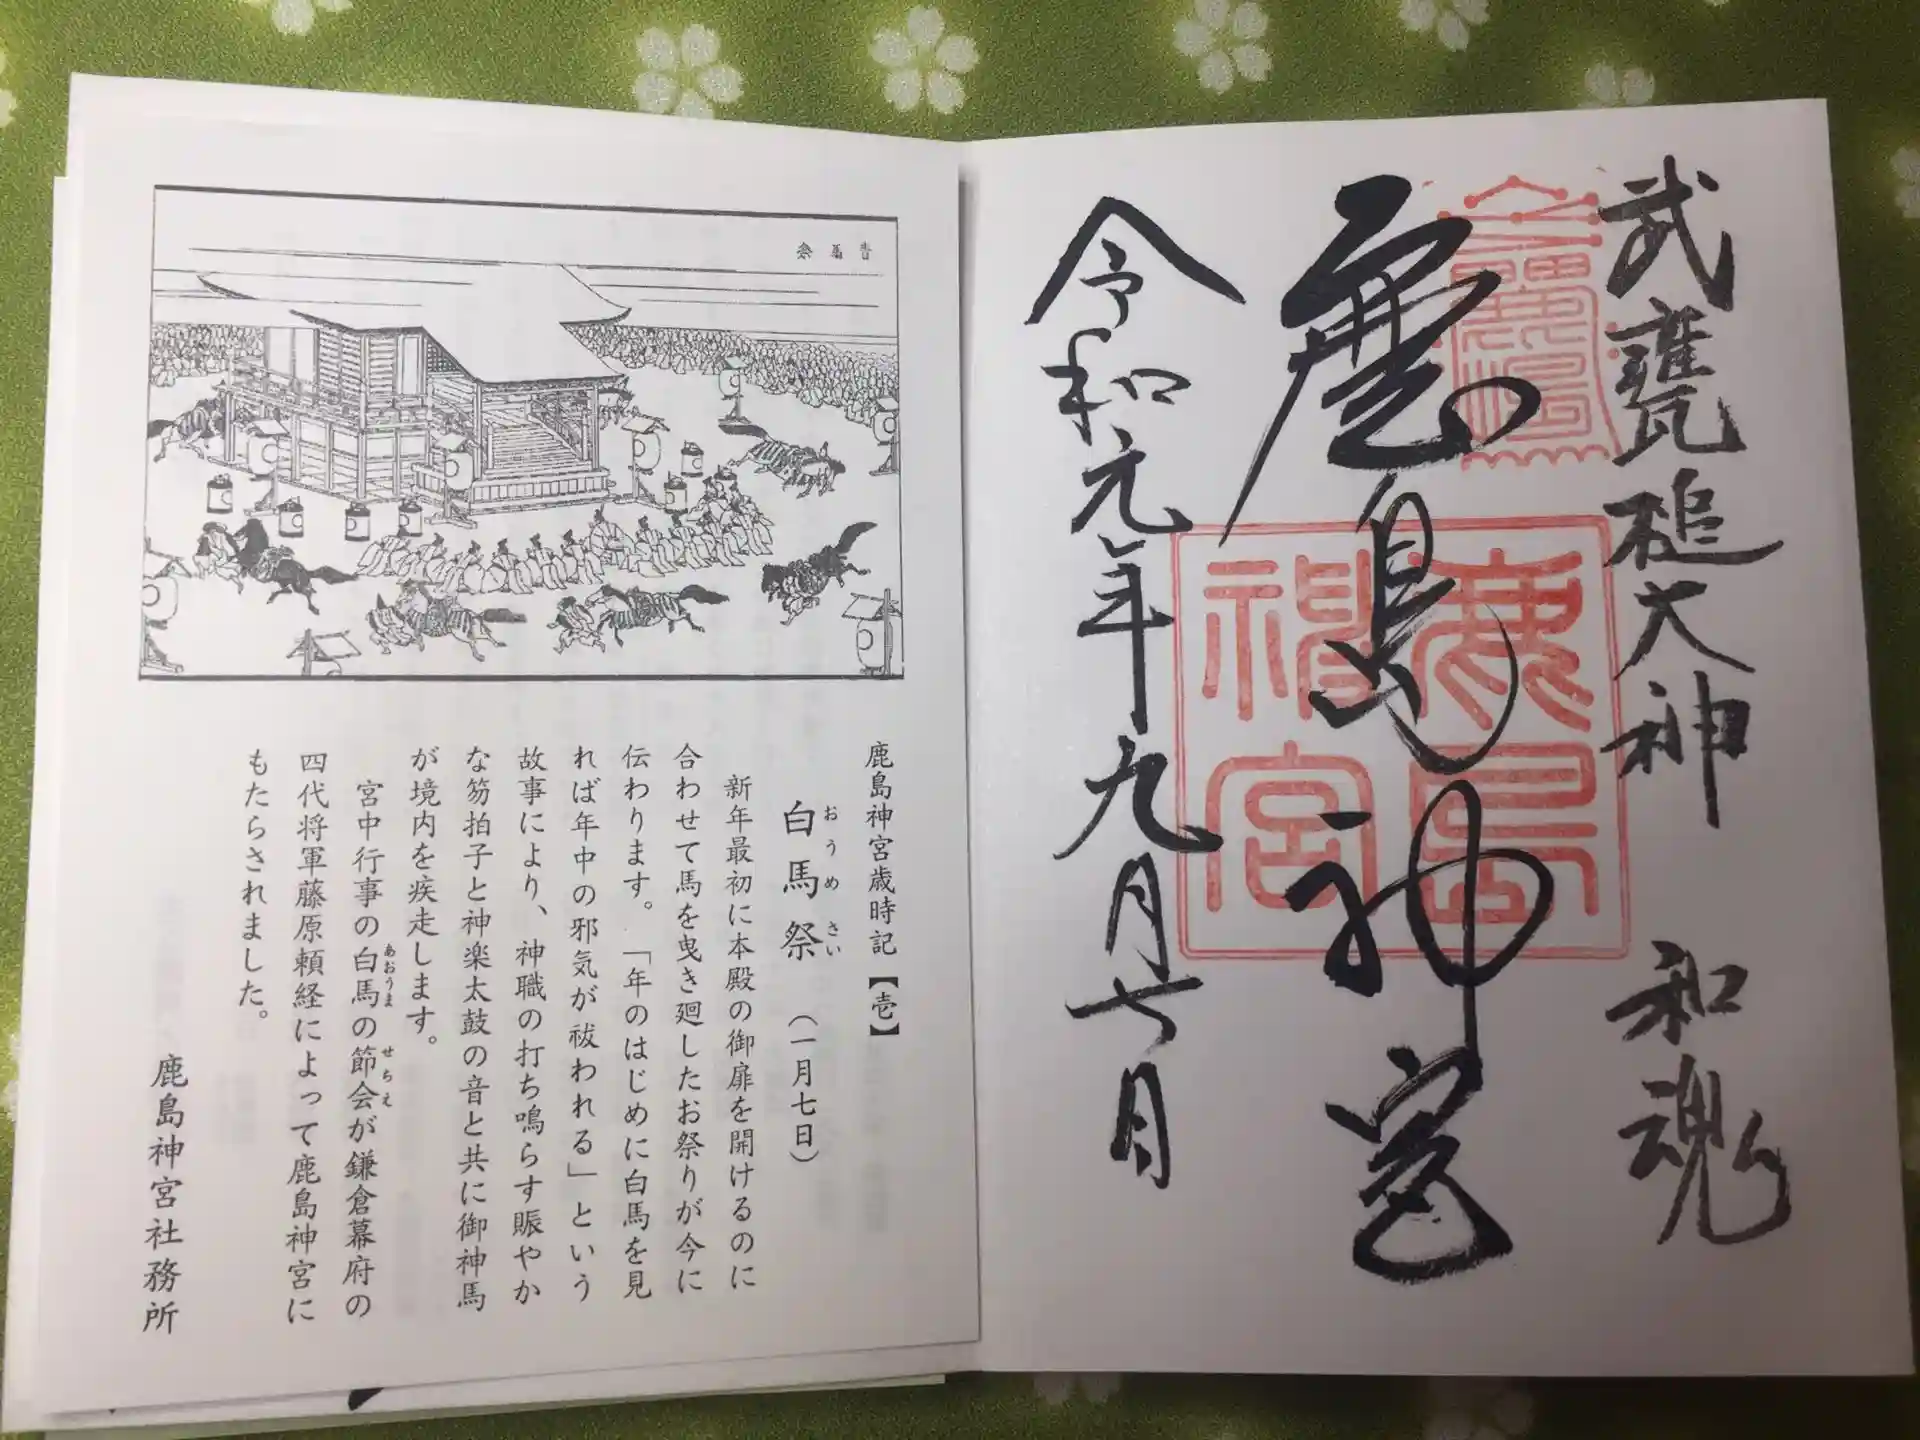 武甕槌大神 和魂
鹿島神宮
鹿島神宮
令和元年九月七日
青馬祭
鹿島神宮歳時記【壱】
白馬祭(一月七日)
おうめさい
新年最初に本殿の御扉を開けるのに
合わせて馬を曳き廻したお祭りが今に
伝わります。「年のはじめに白馬を見
れば年中の邪気が祓われる」という
故事により、神職の打ち鳴らす賑やか
な笏拍子と神楽太鼓の音と共に御神馬
が境内を疾走します。
宮中行事の白馬の節会が鎌倉幕府の
あおうま
せちえ
四代将軍藤原頼経によって鹿島神宮に
もたらされました。
鹿島神宮社務所